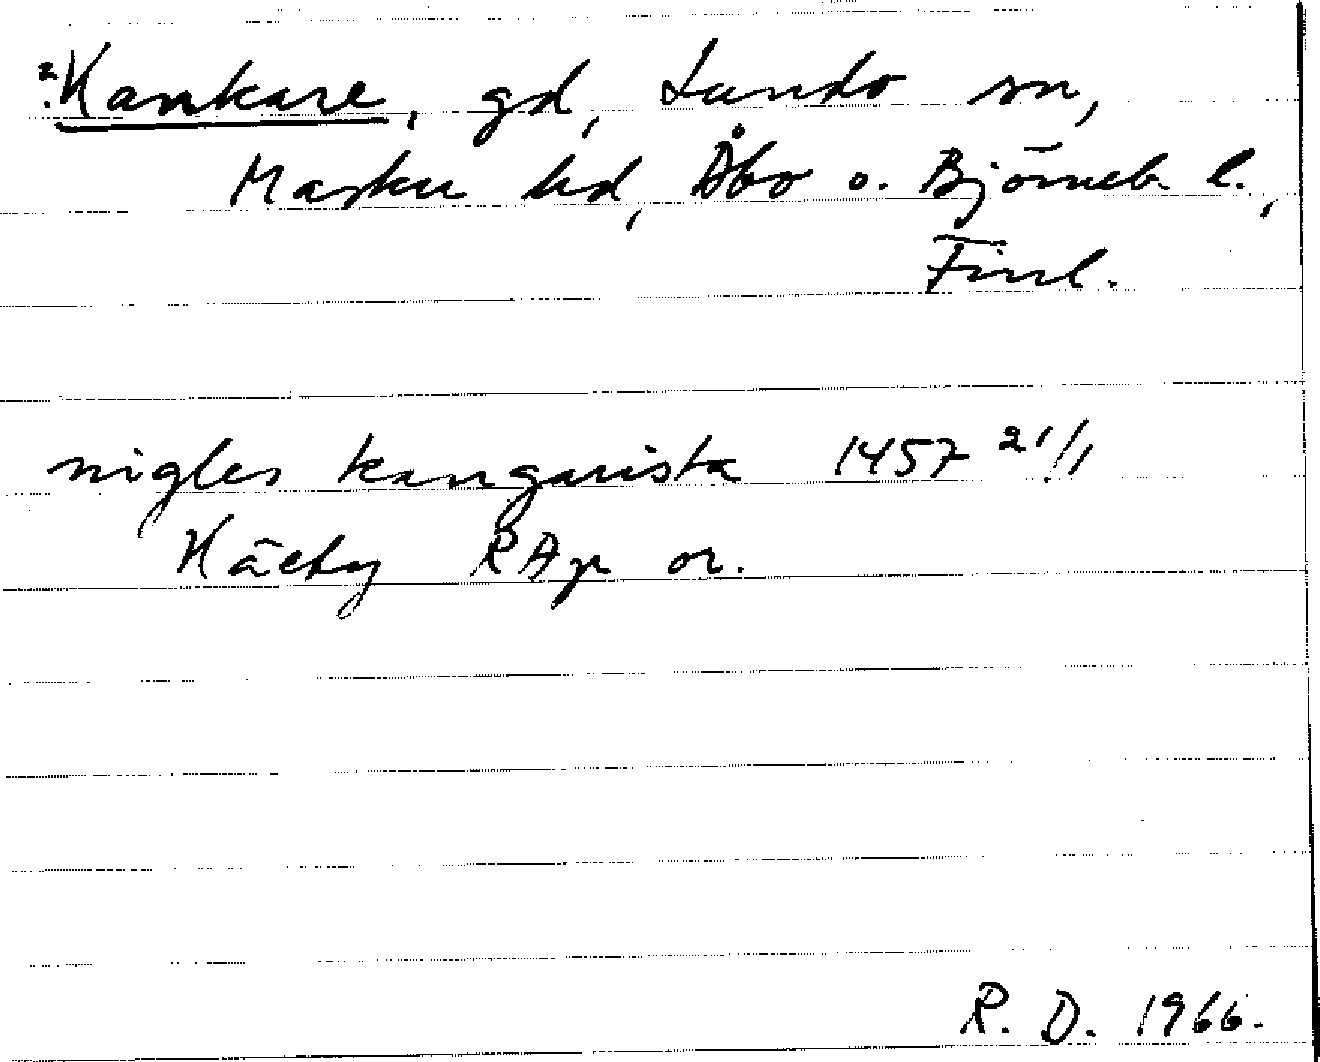 ?Kankare, gd, Lundo sn,
Masku hd, Åbo o. Björneb. l.,
Finl.
nigles kangarista 1457 21/1
Häeby RAp or.
R. D. 1966.